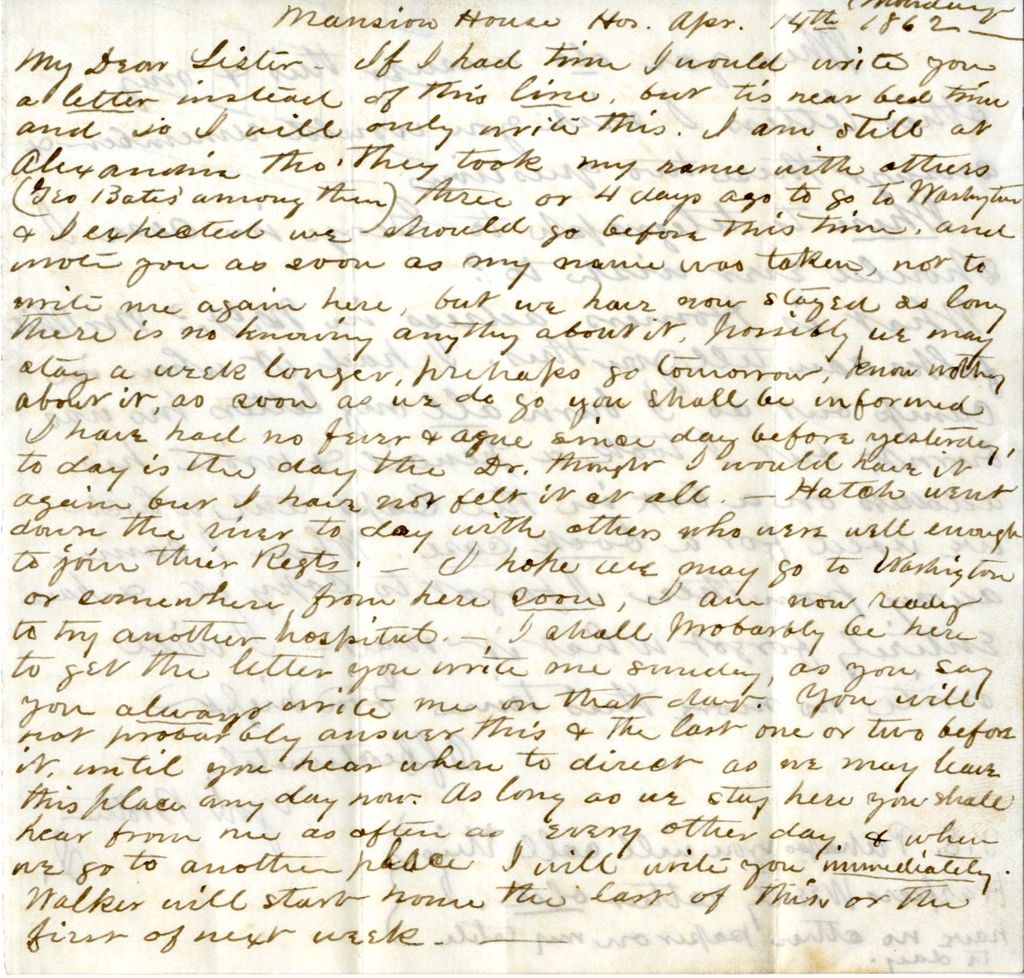 Mansion House Hos. Apr. 14th (Monday) 1862
My Dear Sister - If I had time I would write you
a letter instead of this line, but tis near bed time
and so I will only write this. I am still at
Alexandria tho' they took my name with others
(Geo Bates' among them) three or 4 days ago to go to Washington
& I expected we should go before this time, and
wrote you as soon as my name was taken, not to
write me again here, but we have now stayed so long
there is no knowing anything about it, possibly we may
stay a week longer, perhaps go tomorrow, know nothing
about it, as soon as we do go you shall be informed
I have had no fever & ague since day before yesterday,
to day is the day the Dr. thought I would have it
again but I have not felt it at all. - Hatch went
down the river to day with others who were well enough
to join thier Regts. - I hope we may go to Washington
or somewhere from here soon, I am now ready
to try another hospital. - I shall probarbly be here
to get the letter you write me sunday, as you say
you always write me on that day. You will
not probarbly answer this & the last one or two before
it, until you hear where to direct as we may leave
this place any day now. As long as we stay here you shall
hear from me as often as every other day & when
we go to another place I will write you immediately.
Walker will start home the last of this or the
first of next week. -